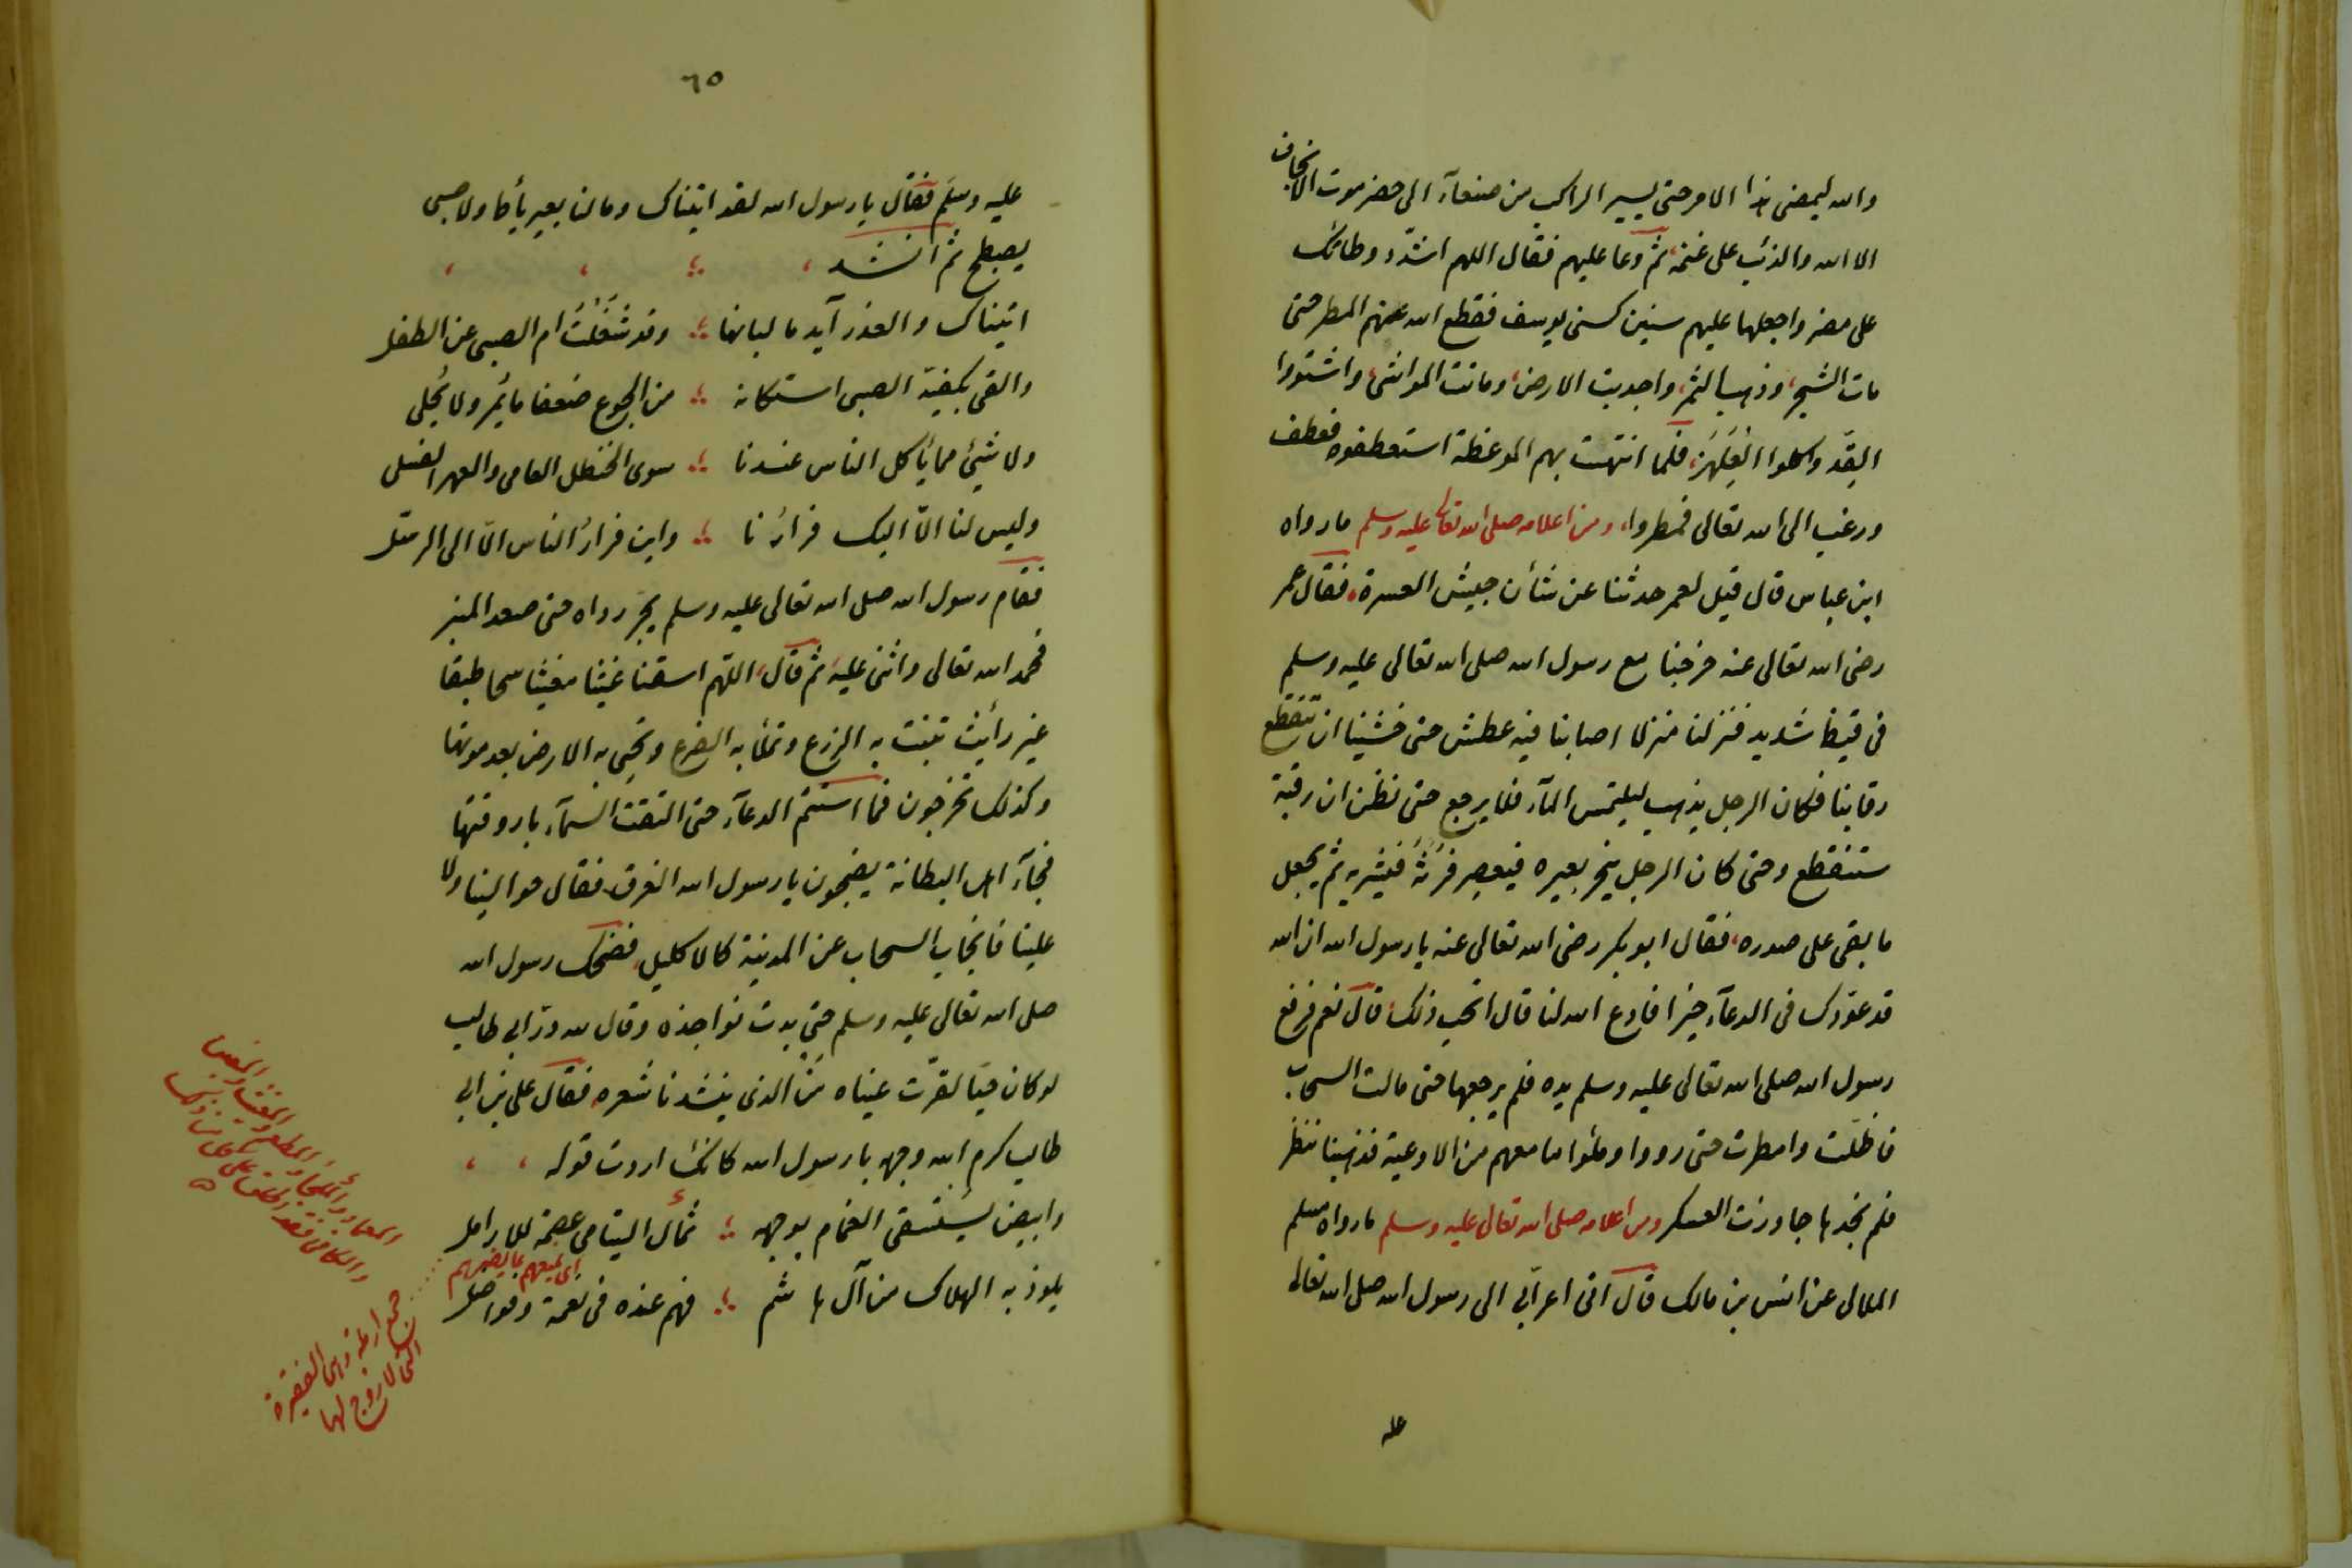 والله ليمضى هذا الامر حتى يسير الراكب من صنعآء الى حضرموت لايخاف
الا الله والذئب على غنمه، ثم دعا عليهم فقال اللهم اشدد وطائك
على مضر واجعلها عليهم سنين كسنى يوسف فقطع الله عنهم المطر حتى
مات الشجر، وذهب الثمر، واجدبت الارض، وماتت المواشى، واشتووا
القِدَّ واكلوا العِلهَز، فلما انتهت بهم الموعظة استعطفوه فعطف
ورغب الى الله تعالى فمطروا، ومن اعلامه صلى الله تعالى عليه وسلم مارواه
ابن عباس قال قيل لعمر حدثنا عن شأن جيش العسرة، فقال عمر
رضى الله تعالى عنه خرجنا مع رسول الله صلى الله تعالى عليه وسلم
فى قيظ شديد فنزلنا منزلا اصابنا فيه عطش حتى خشينا ان تنقطع
رقابنا فكان الرجل يذهب ليلتمس المآء فلا يرجع حتى نظن ان رقبته
ستنقطع وحتى كان الرجل ينحر بعيره فيعصر فَرْثَهُ فيشربه ثم يجعل
ما بقى على صدره، فقال ابو بكر رضى الله تعالى عنه يا رسول الله ان الله
قد عوّدك فى الدعآء خيرا فادع الله لنا قال اتحب ذلك، قال نعم فرفع
رسول الله صلى الله تعالى عليه وسلم يده فلم يرجعها حتى مالت السحاب
فاظلّت وامطرت حتى رووا وملئوا ما معهم من الاوعية فذهبنا ننظر
فلم نجدها جاوزت العسكر ومن اعلامه صلى الله تعالى عليه وسلم مارواه مسلم
الملالى عن انس بن مالك قال اتى اعرابى الى رسول الله صلى الله تعالى
عليه
٦٥
عليه وسلم فقال يا رسول الله لقد اتيناك ومالنا بعير يأط ولا صبى
يصطبح ثم انشد
اتيناك والعذرآء يدمى لبانها ؛ وقد شَغَلَتْ ام الصبى عن الطفل
والقى بكفيه الصبى استكانه ؛ من الجوع ضعفا ما يُمِر ولا يُحلى
ولا شىء مما يأكل الناس عندنا ؛ سوى الحنظل العامى والعهر الفسل
وليس لنا الّا اليك فرارُنا ؛ واين فرارُ الناس الّا الى الرسل
فقام رسول الله صلى الله تعالى عليه وسلم يجر رداه حتى صعد المنبر
فحمد الله تعالى واثنى عليه، ثم قال، اللّهم اسقنا غيثا مغيثا سحا طبقا
غير رائث تنبت به الزرع وتملأ به الضرع وتحيى به الارض بعد موتها
وكذلك تخرجون فما استتم الدعآء حتى التقت السمآء باروقتها
فجآء اهل البطانة يضجون يا رسول الله الغرق فقال حوالينا ولا
علينا فانجاب السحاب عن المدينة كالاكليل، فضحك رسول الله
صلى الله تعالى عليه وسلم حتى بدت نواجذه وقال لله درّ ابى طالب
لو كان حيا لقرّت عيناه مَن الذى ينشدنا شعره، فقال على بن ابى
طالب كرم الله وجهه يا رسول الله كانك اردت قوله
وابيض يستسقى الغمام بوجهه ؛ ثمال اليتامى عصمة للارامل
يلوذ به الهلاك من آل هاشم ؛ فهم عنده فى نعمة وفواضل
جمع ارملة وهى الفقيرة
التى لا زوج لها